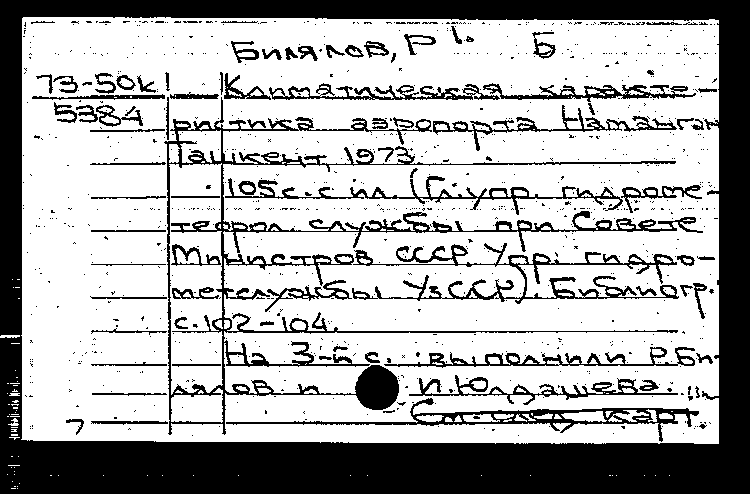 Билялов, Р 1. Б
73-50к Климатическая характе-
5384 ристика аэропорта Наманган
Ташкент, 1973.
105 с. с ил. (Гл. упр. гидроме-
теорол. службы при Совете
Министров СССР. Упр. гидро-
метслужбы УзССР). Библиогр.
с. 102-104.
На 3-й с.: выполнили Р. Би-
лялов и И. Юлдашева.
См. след. карт.